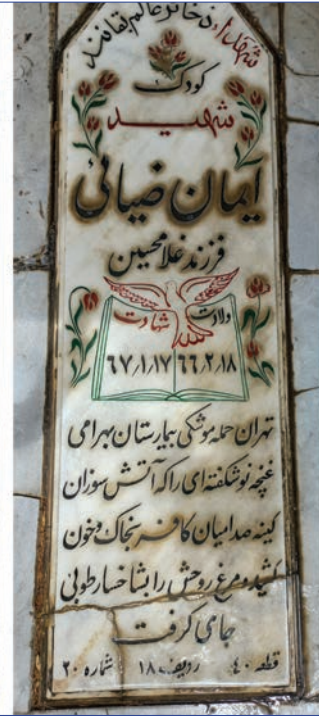 شهدا ذخائر عالم بقا هستند
کودک
شهید
ایمان ضیائی
فرزند غلامحسین
ولادت شهادت
۶۶٫۲٫۱۸ ۶۷٫۱٫۱۷
تهران حمله موشکی بیمارستان بهرامی
غنچه نوشکفته‌ای را که آتش سوزان
کینه صدامیان کافر بخاک و خون
کشید و مرغ روحش را بشاخسار طوبی
جای گرفت
قطعه ۴۰ ردیف ۱۸ شماره ۲۰